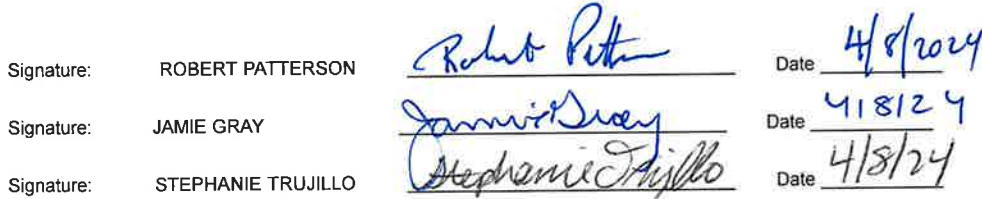 Signature: ROBERT PATTERSON Robert Patterson Date 4/8/2024
Signature: JAMIE GRAY Jamie Gray Date 4/8/24
Signature: STEPHANIE TRUJILLO Stephanie Trujillo Date 4/8/24